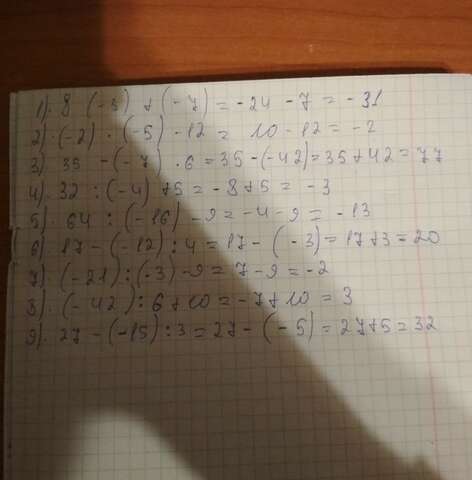 1). 8 (-3) + (-7) = -24 - 7 = -31
2). (-2) · (-5) - 12 = 10 - 12 = -2
3) 35 - (-7) · 6 = 35 - (-42) = 35 + 42 = 77
4). 32 : (-4) + 5 = -8 + 5 = -3
5). 64 : (-16) - 9 = -4 - 9 = -13
6) 17 - (-12) : 4 = 17 - (-3) = 17 + 3 = 20
7) (-21) : (-3) - 9 = 7 - 9 = -2
8). (-42) : 6 + 10 = -7 + 10 = 3
9). 27 - (-15) : 3 = 27 - (-5) = 27 + 5 = 32